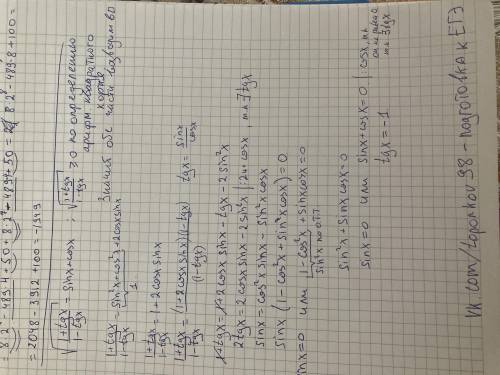 = 8·2⁸ - 489·4 + 50 + 8·2⁷ - 489·4 + 50 = 8·2⁸ - 489·8 + 100 =
= 2048 - 3912 + 100 = -1949
√((1+tgx)/(1-tgx)) = sinx + cosx ; √((1+tgx)/(1-tgx)) ≥ 0 по определению
арифм квадратного
корня
Значит обе части возводим в □
(1+tgx)/(1-tgx) = sin²x + cos²x + 2cosxsinx
1
(1+tgx)/(1-tgx) = 1 + 2cosx sinx
(1+tgx)/(1-tgx) = (1+2cosxsinx)(1-tgx)/(1-tgx) tgx = sinx/cosx
1+tgx = 1+2cosx sinx - tgx - 2sin²x
2tgx = 2cosx sinx - 2sin²x |:2 и · cosx т.к ∃ tgx
sinx = cos²x sinx - sin²x cosx
sinx (1 - cos²x + sinx cosx) = 0
sinx = 0 или 1 - cos²x + sinxcosx = 0
sin²x по ОТТ
sin²x + sinx cosx = 0
sinx = 0 или sinx + cosx = 0 |: cosx, т.к
он не равен 0
т.к ∃ tgx
tgx = -1
vk.com/toporkov98 - подготовка к ЕГЭ